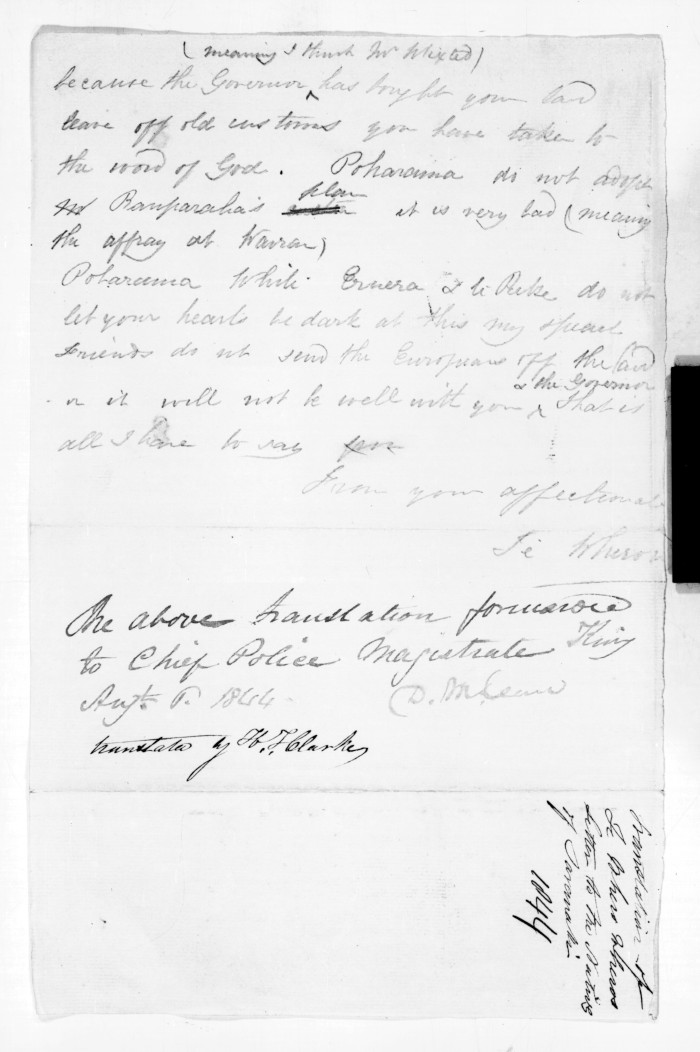 (meaning I think Mr Wixted)
because the Governor ^ has bought your land
leave off old customs you have taken to
the word of God. Poharama do not adopt
Rauparaha's plan it is very bad (meaning
the affray at Wairau)
Poharama Whiti Eruera & te Peke do not
let your hearts be dark at this my speech
Friends do not send the Europeans off the land
& the Governor
or it will not be well with you ^ That is
all I have to say
From your affectionate
Te Whero
The above translation forwarded
to Chief Police Magistrate King
Augt. 6. 1844. (D. McLean
translated by H. T. Clarke
Translation of
Te Whero Wheros
Letter to the Natives
of Taranaki
1844